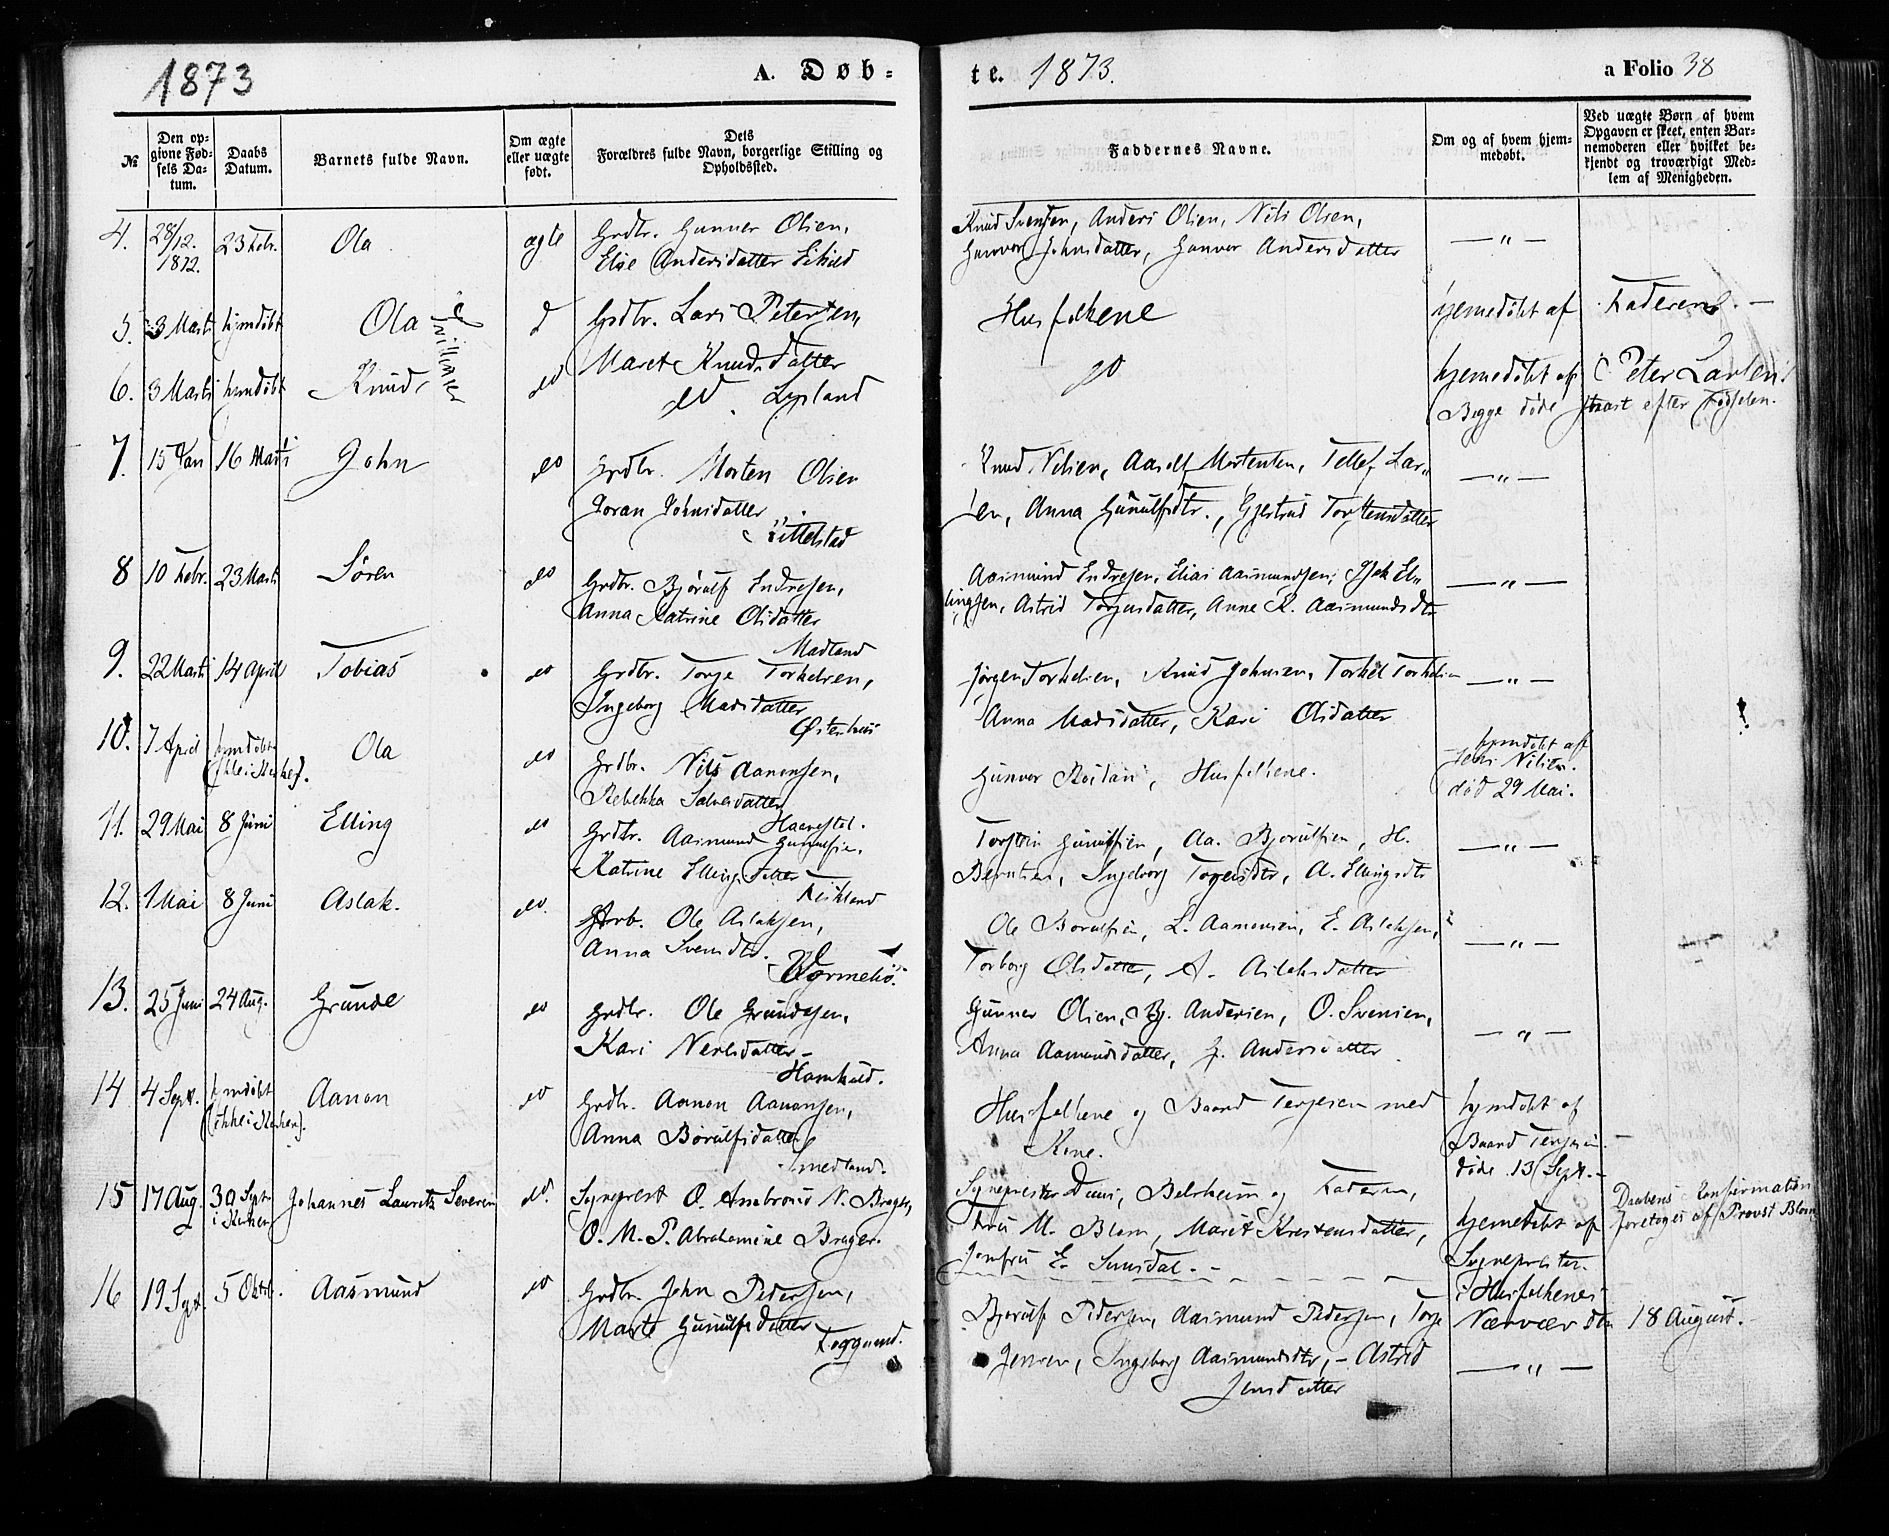 1873
A. Døb-
te. 1873.
a Folio 38
№
Den opgivne Fødsels Datum.
Daabs Datum.
Barnets fulde Navn.
Om ægte eller uægte født.
Dets Forældres fulde Navn, borgerlige Stilling og Opholdssted.
Faddernes Navne.
Om og af hvem hjemmedøbt.
Ved uægte Børn af hvem Opgaven er skeet, enten Barnemoderen eller hvilket bekjendt og troværdigt Medlem af Menigheden.
4. 28/12. 1872. 23 Febr. Ola ægte Grdbr. Gunner Olsen,
Else Andersdatter
Knud Svendsen, Anders Olsen, Nils Olsen,
Gunvor Johnsdatter, Gunvor Andersdatter
— " —
5. 3 Marts hjmdøbt Ola Tvillinger d Grdbr. Lars Petersen,
Maret Knudsdatter
Husfolkene
hjemmedøbt af Faderen. —
6. 3 Marts hjmdøbt Knud do do Lysland
do
hjemedøbt af Peter Larsen
Begge døde strart efter Fødselen.
7. 15 Jan 16 Marts John do Grdbr. Morten Olsen
Joran Johnsdatter
Kittelstad
Knud Nilsen, Aasulf Mortensen, Tellef Lar-
sen, Anna Gunulfsdtr., Gjertrud Torstensdatter
— " —
8 10 Febr. 23 Marts Søren do Grdbr. Bjørulf Endresen,
Anna Katrine Olsdatter
Madland
Aasmund Endresen, Elias Aasmundsen, Isak El-
lingsen, Astrid Torjusdatter, Anne K. Aasmundsdtr
— " —
9. 22 Marts 14 April Tobias do Grdbr. Torje Torkelsen,
Ingeborg Madsdatter
Østerhus
Jørgen Torkelsen, Knud Johnsen, Torkel Torkelsen
Anna Madsdatter, Kari Olsdatter
— " —
10. 7 April hjmdøbt (ikke i Kirken). Ola do Grdbr. Nils Aanonsen,
Rebekka Salvesdatter
Haavestøl.
Gunvor, Husfolkene.
hjmdøbt af Jens Nilsen.
død 29 Mai.
11. 29 Mai 8 Juni Elling do Grdbr. Aasmund Gunulfsen,
Katrine Ellingsdatter
Torstein Gunulfsen, Aa. Bjorulfsen, H.
Berntsen, Ingeborg Torjusdtr, A. Ellingsdtr
— " —
12. 1 Mai 8 Juni Aslak. do. Grdb. Ole Aslaksen,
Anna Svendsdtr.
Ole Borulfsen, L. Aamonsen, E. Aslaksen,
Torborg Olsdatter, A. Aslaksdatter
— " —
13. 25 Juni 24 Aug. Grunde do Grdbr. Ole Grundesen,
Kari Nerlsdatter —
Gunner Olsen, Bj. Andersen, O. Svensen,
Anna Aamundsdatter, G. Andersdatter
— " —
14 4 Sept. hjmdøbt (ikke i Kirken). Aanon do Grdbr. Aanon Aanonsen,
Anna Børulfsdatter
Smedland.
Husfolkene og Baard Terjesen med
Kone.
hjmdøbt af
Baard Terjesen.
døde 13 Sept. —
15 17 Aug. 30 Sept. i Kirken Johannes Lauritz Severin do. Sognepræst O. Ambrosius N. Brager,
O. M. P. Abrahamine Brager.
Sognepræster Duus, Belsheim og Faderen,
Fru M. Blom, Maret Krestensdatter,
Jomfru E. Sunsdal. —
hjemedøbt af
Sognepræsten
i Husfolkenes
Nærvær den 18 August. —
Daabens Konfirmation
foretoges af Provst Blom
16 19 Sept. 5 Oktbr. Aasmund do Grdbr. John Pedersen,
Marte Gunulfsdatter
Bjorulf Pedersen, Aasmund Pedersen, Torje
Jensen, Ingeborg Aasmundsdtr, — Astrid
Jensdatter
— " —